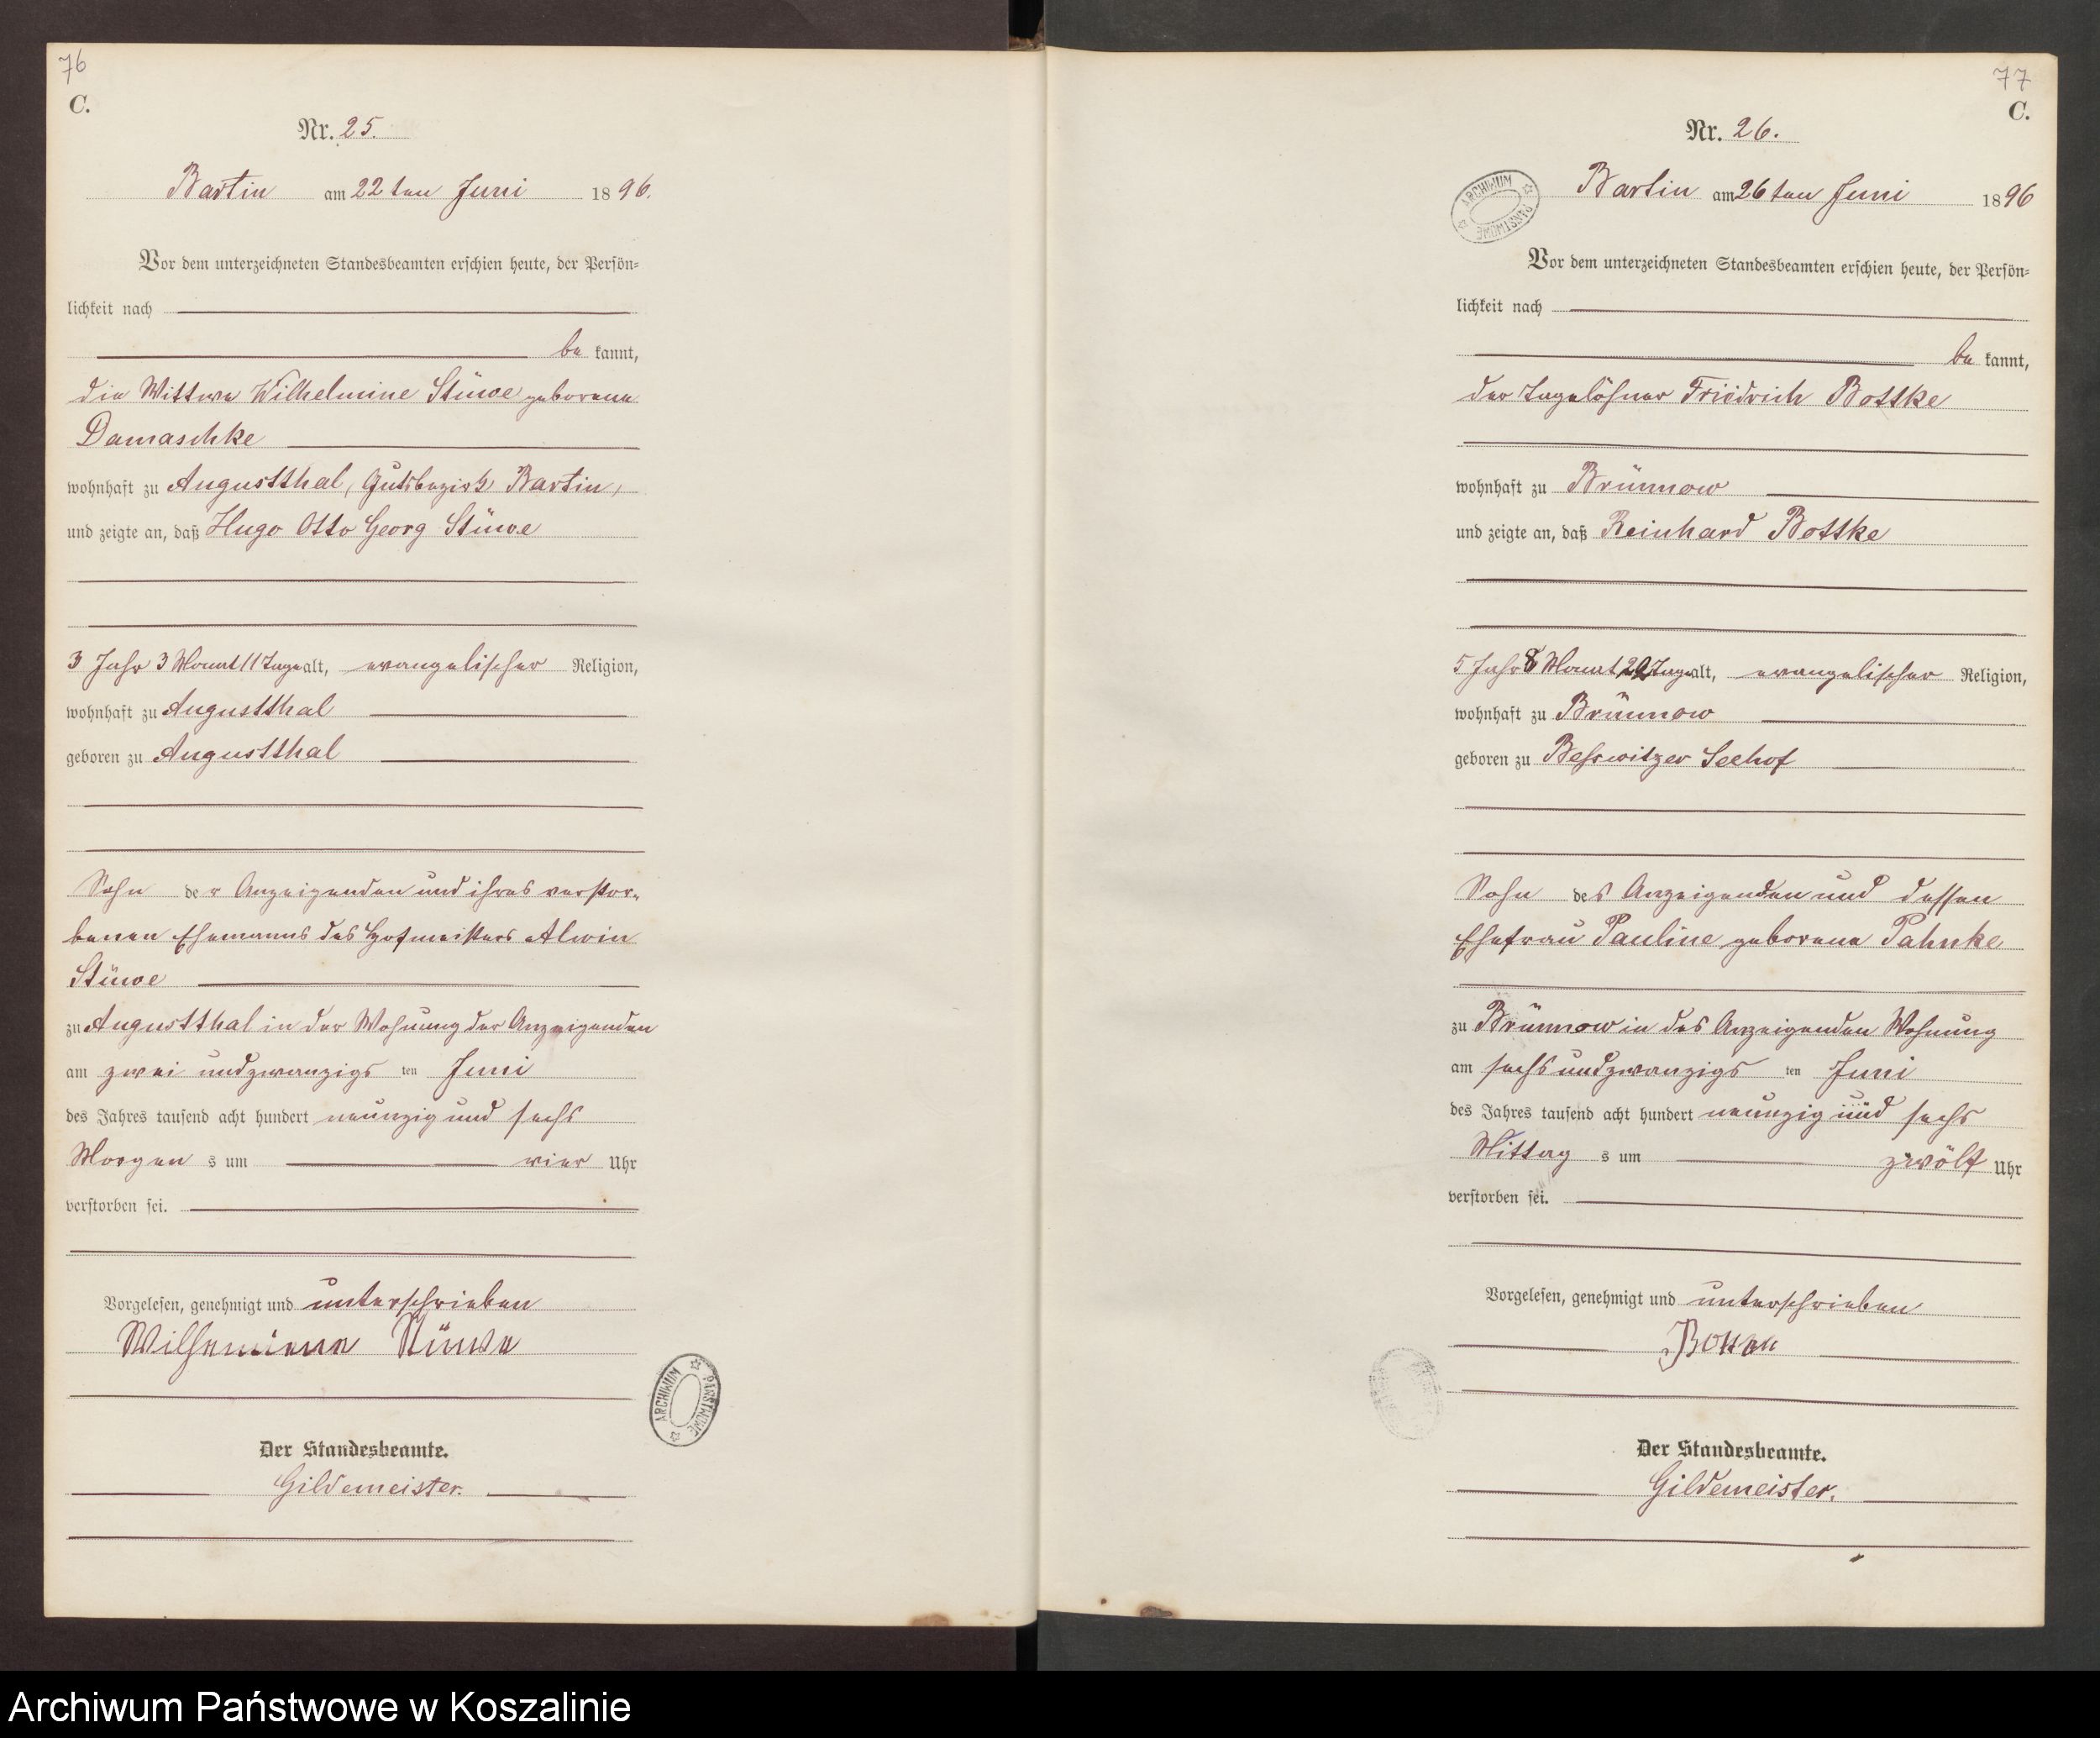 76
C.
Nr. 25.
Bartin am 22ten Juni 1896.
Vor dem unterzeichneten Standesbeamten erschien heute, der Persön-
lichkeit nach
be kannt,
die Wittwe Wilhelmine Stüwe geborene
Damaschke
wohnhaft zu Augustthal, Gutsbezirk Bartin,
und zeigte an, daß Hugo Otto Georg Stüwe
3 Jahr 3 Monat 11 Tage alt, evangelischer Religion,
wohnhaft zu Augustthal
geboren zu Augustthal
Sohn der Anzeigenden und ihres verstor-
benen Ehemanns des Hofmeisters Alwin
Stüwe
zu Augustthal in der Wohnung der Anzeigenden
am zwei undzwanzigs ten Juni
des Jahres tausend acht hundert neunzig und sechs
Morgen s um vier Uhr
verstorben sei.
Vorgelesen, genehmigt und unterschrieben
Wilhemiene Stüwe
Der Standesbeamte.
Gildemeister.
ARCHIWUM PAŃSTWOWE
77
C.
Nr. 26.
ARCHIWUM PAŃSTWOWE
Bartin am 26ten Juni 1896
Vor dem unterzeichneten Standesbeamten erschien heute, der Persön-
lichkeit nach
be kannt,
der Tagelöhner Friedrich Bottke
wohnhaft zu Brünnow
und zeigte an, daß Reinhard Bottke
5 Jahr 8 Monat Tage alt, evangelischer Religion,
wohnhaft zu Brünnow
geboren zu Besswitzer Seehof
Sohn des Anzeigenden und dessen
Ehefrau Pauline geborene Pahnke
zu Brünnow in des Anzeigenden Wohnung
am sechsundzwanzigs ten Juni
des Jahres tausend acht hundert neunzig und sechs
Mittag s um zwölf Uhr
verstorben sei.
Vorgelesen, genehmigt und unterschrieben
Der Standesbeamte.
Gildemeister.
Archiwum Państwowe w Koszalinie